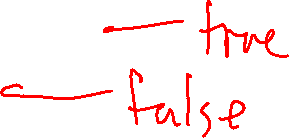 true
false